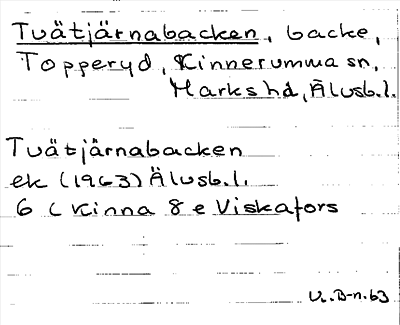 Tvätjärnabacken, backe,
Topperyd, Kinnerumma sn,
Marks hd, Älvsb.l.
Tvätjärnabacken
ek (1963) Älvsb.l.
6 C Kinna 8 e Viskafors
B-n. 63